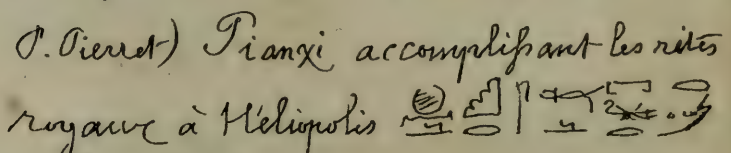 P. Pierret) Pianχi accomplissant les rites
royaux à Héliopolis